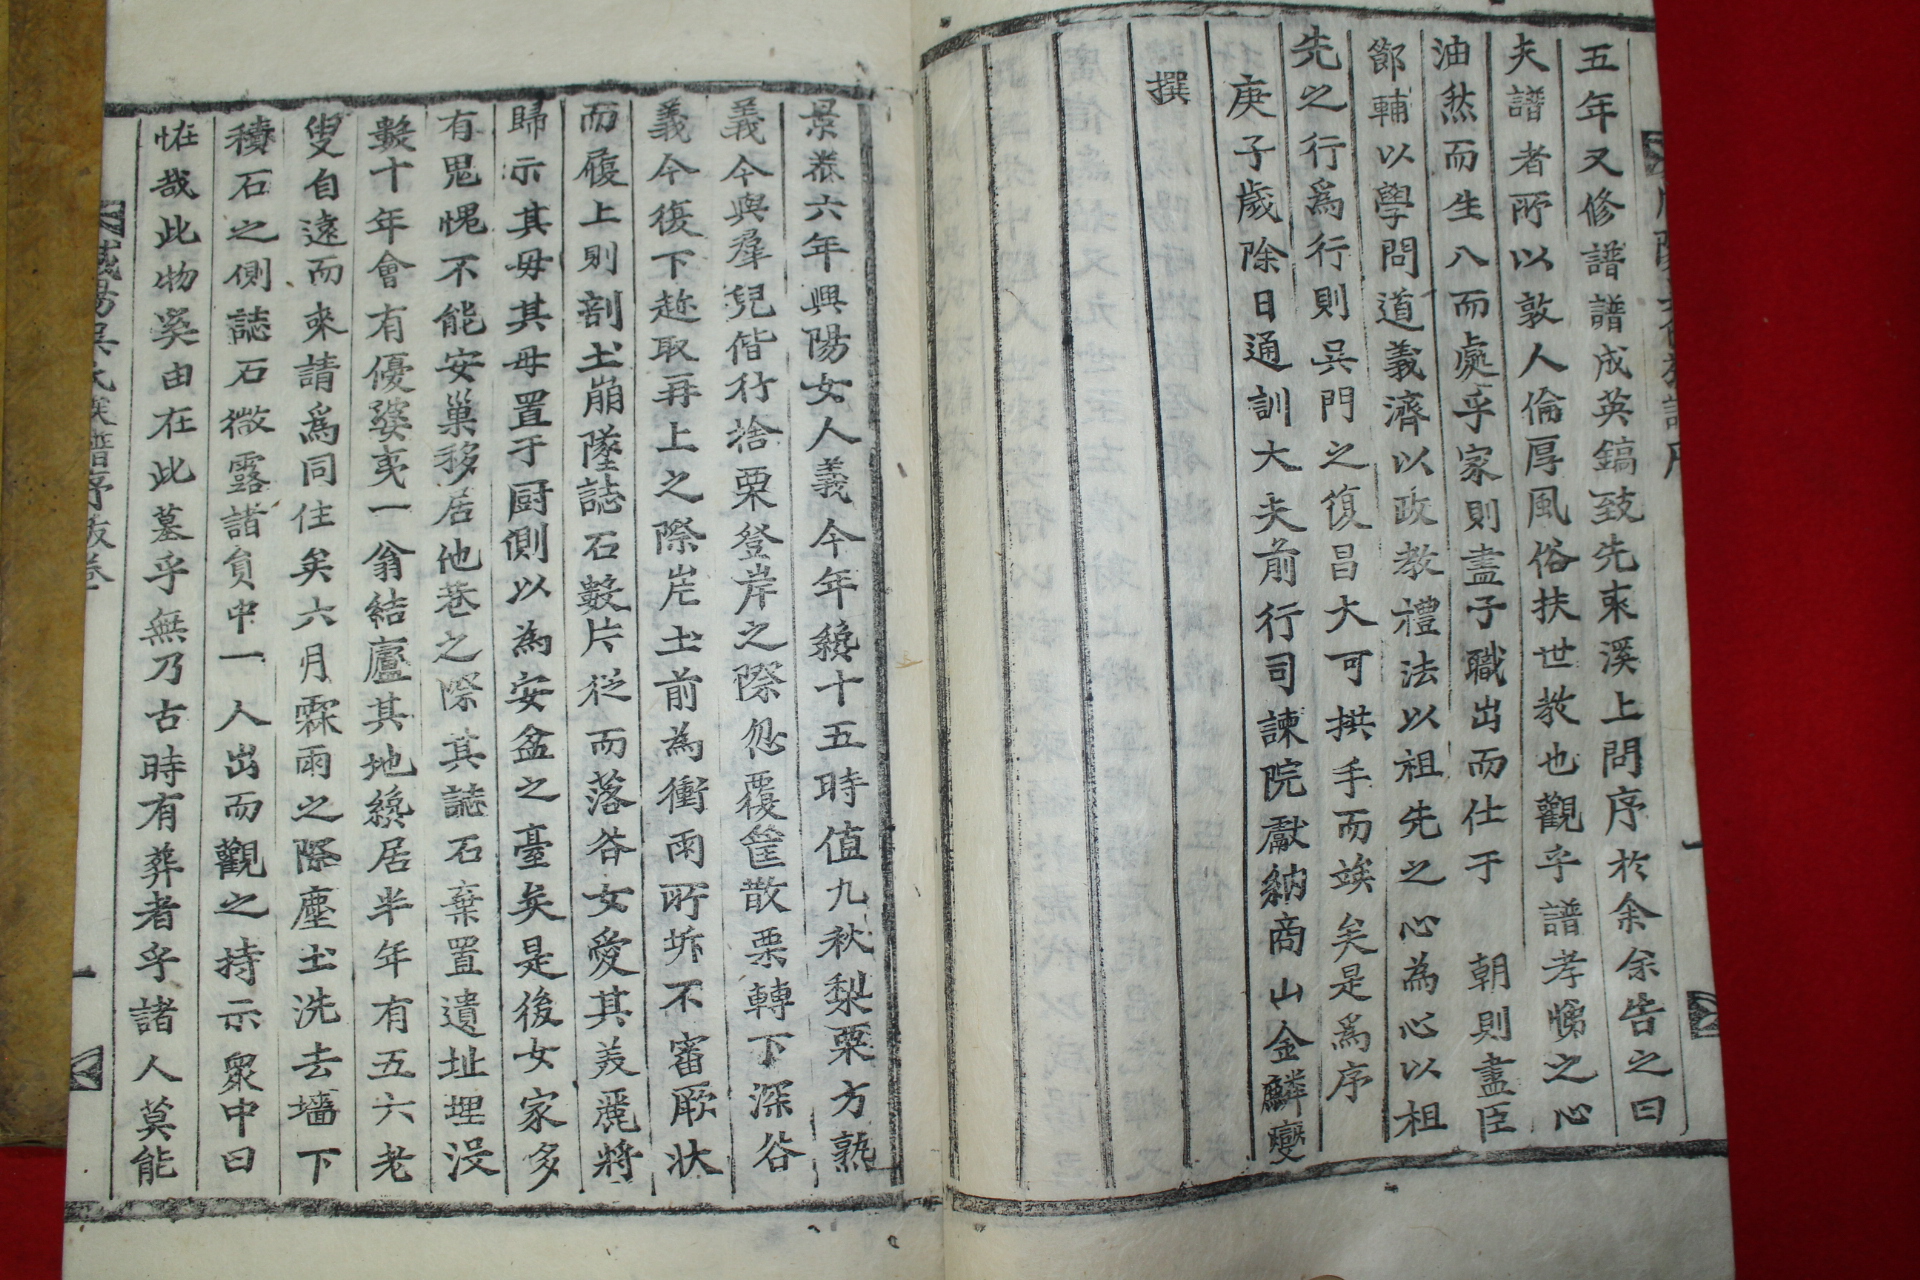 五年又修譜譜成英鎬致先來溪上問序於余余告之曰
夫譜者所以敦人倫厚風俗扶世教也觀乎譜孝悌之心
油然而生入而處乎家則盡子職出而仕于 朝則盡臣
節輔以學問道義濟以政教禮法以祖先之心為心以祖
先之行爲行則吳門之復昌大可拱手而竢矣是爲序
庚子歲除日通訓大夫前行司諫院獻納商山金麟燮
撰
景泰六年興陽女人義今年纔十五時值九秋梨栗方熟
義今與羣兒偕行捨栗登岸之際忽覆筐散栗轉下深谷
義今復下趂取再上之際岸土前為衝雨所坼不審厥狀
而履上則剖土崩墜誌石數片從而落谷女愛其美麗將
歸示其母其母置于厨側以為安盆之臺矣是後女家多
有鬼愧不能安巢移居他巷之際其誌石棄置遺址埋沒
數十年會有優婆夷一翁結廬其地纔居半年有五六老
叟自遠而來請爲同住矣六月霖雨之際塵土洗去墻下
積石之側誌石微露諸員中一人出而觀之持示衆中曰
恠哉此物奚由在此墓乎無乃古時有葬者乎諸人莫能
咸陽吳氏族譜序跋卷一